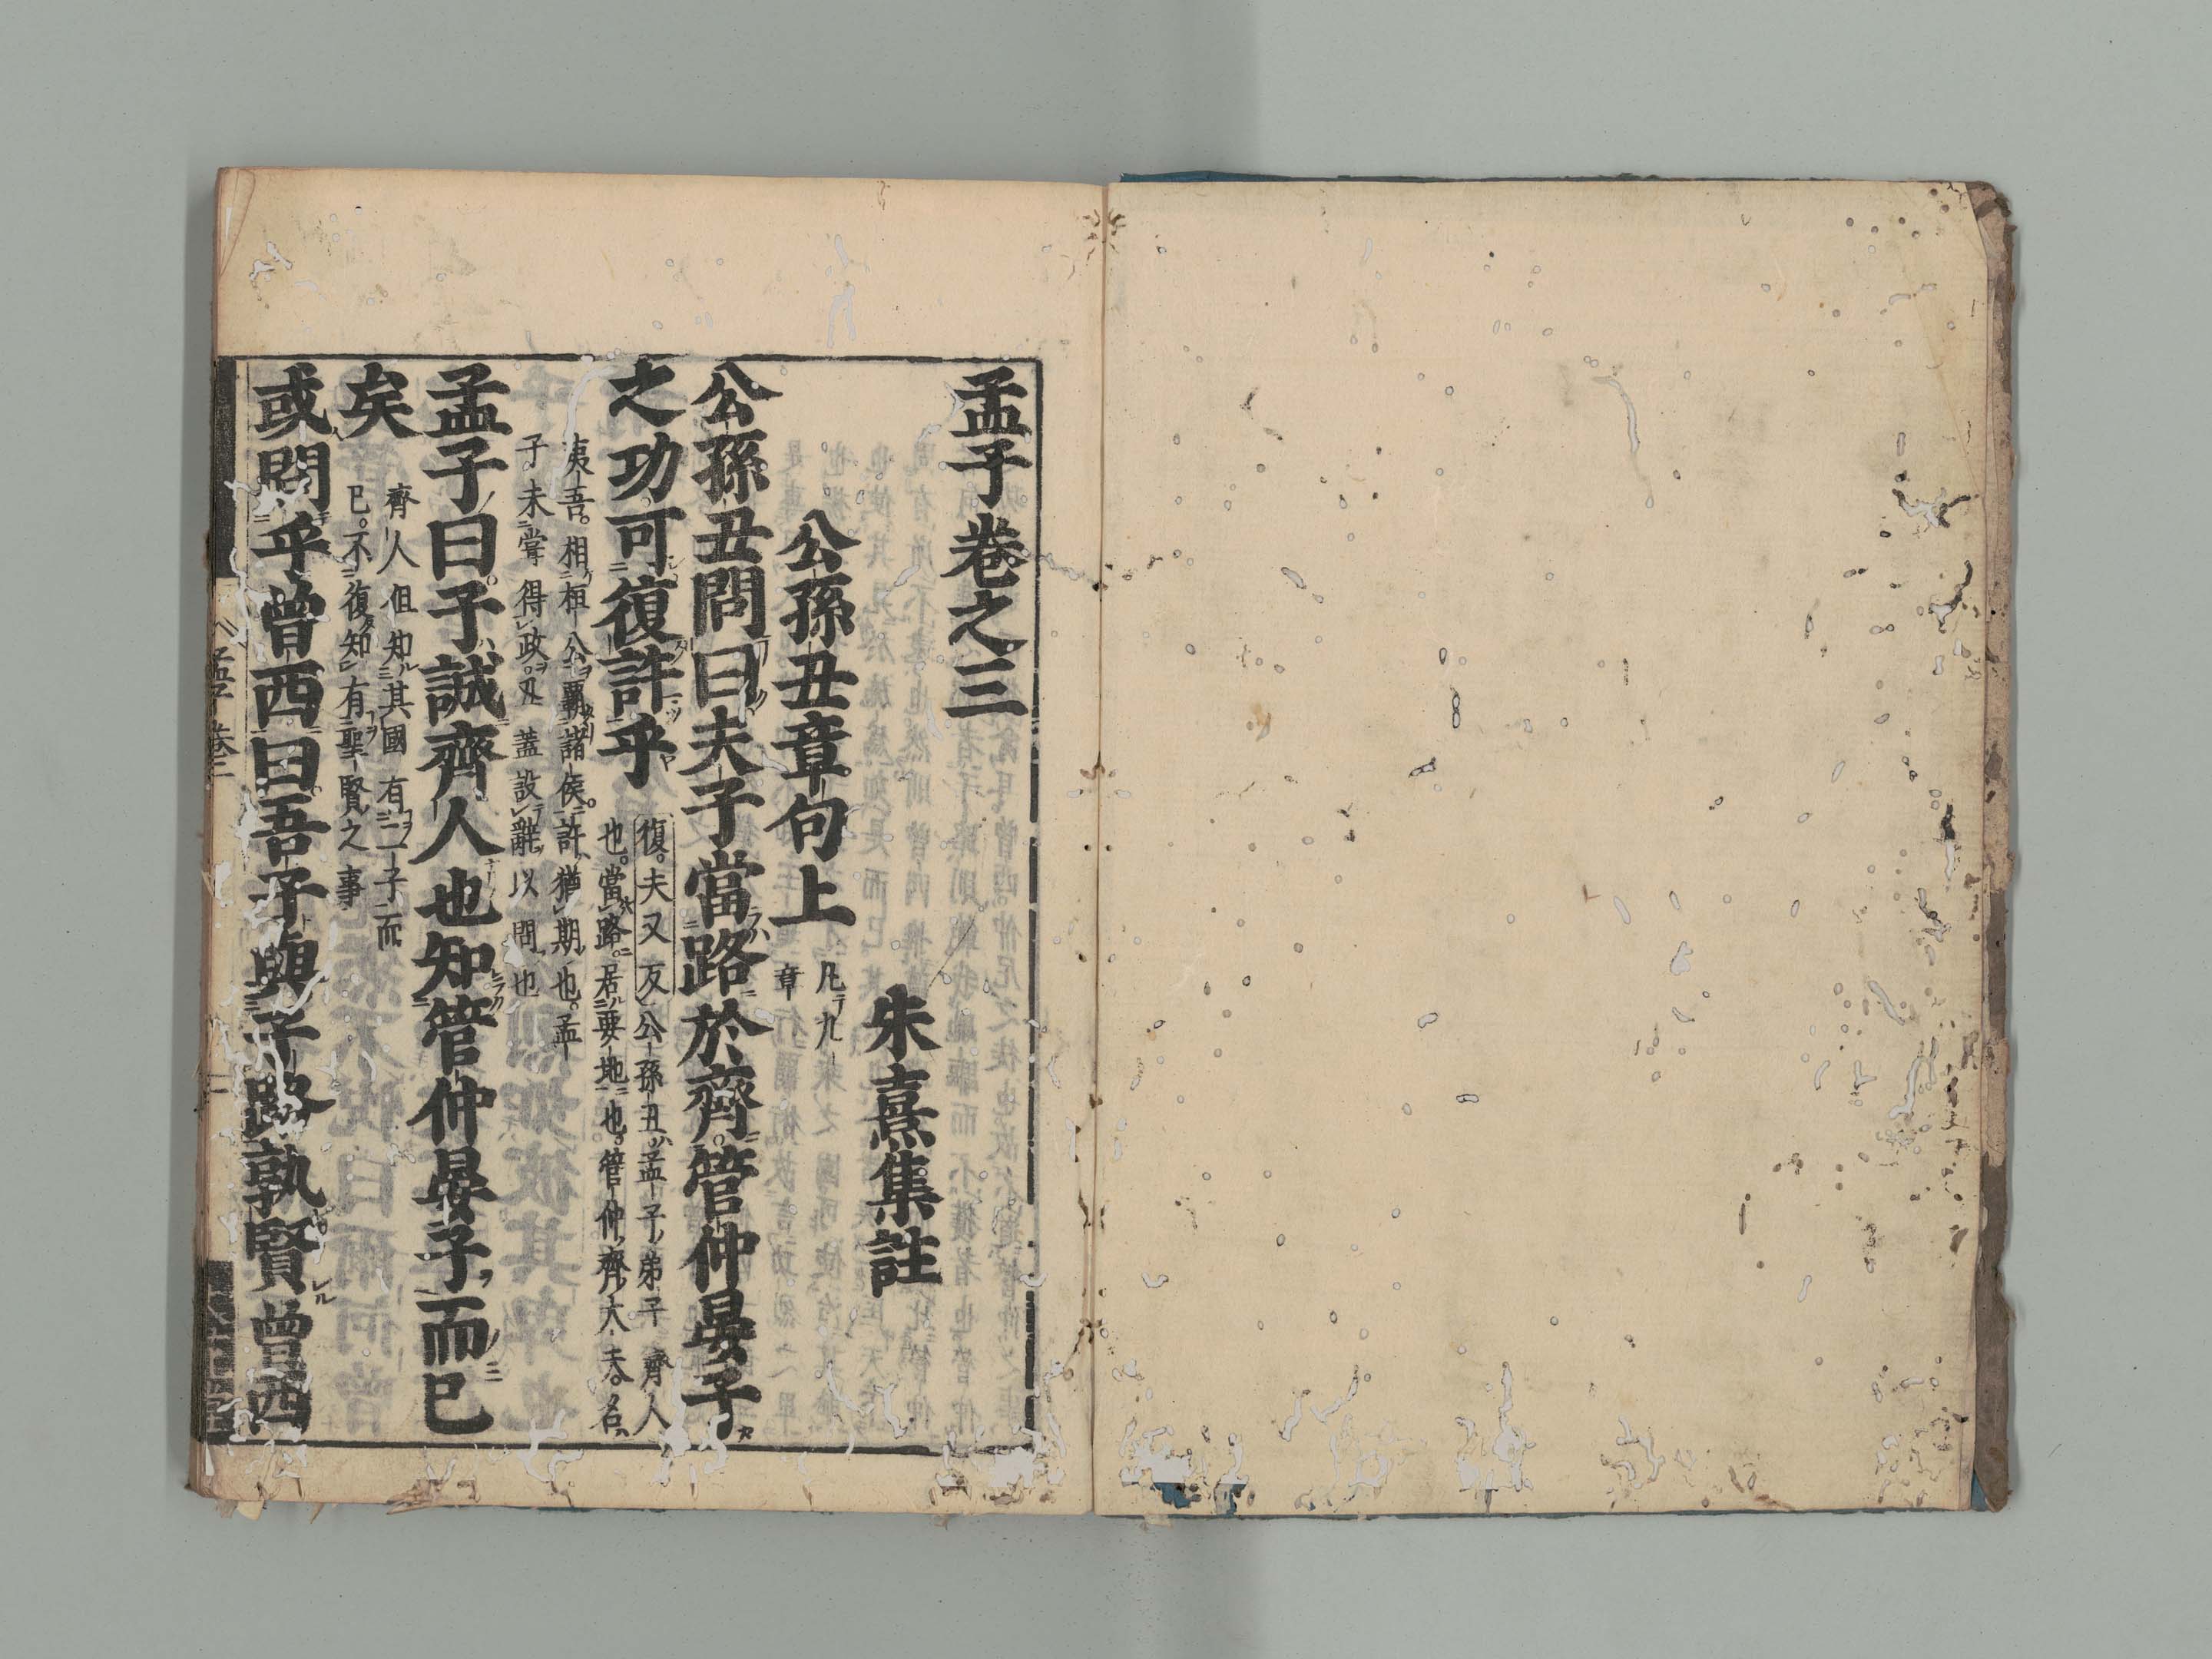 孟子卷之三
朱熹集註
公孫丑章句上
凡九
章
公孫丑問曰夫子當路於齊管仲晏子
之功可復許乎
復夫又反公孫丑孟子弟子齊人
也當路居要地也管仲齊大夫名
夷吾相桓公霸諸侯許猶期也孟
子未嘗得政丑蓋設辭以問也
孟子曰子誠齊人也知管仲晏子而已
矣
齊人但知其國有二子而
已不復知有聖賢之事
或問乎曾西曰吾子與子路孰賢曾西
孟子 卷三